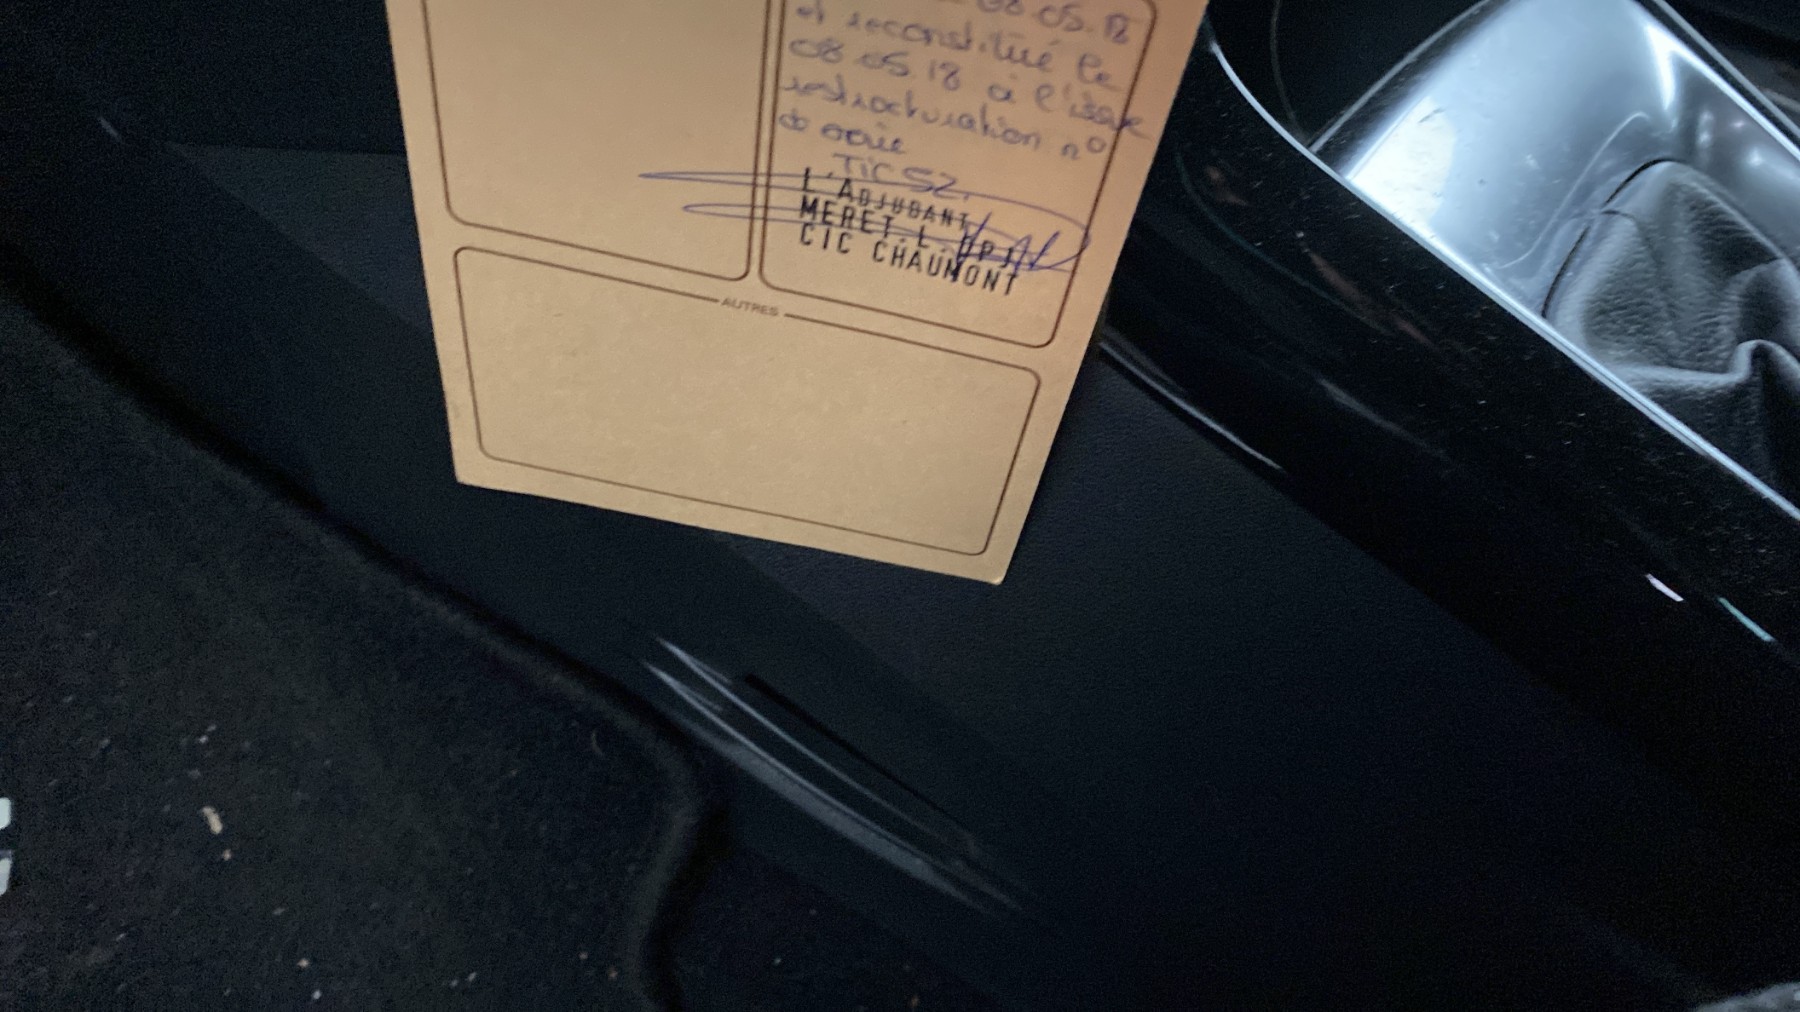 08.05.18
et reconstitué le
08.05.18 à l'issue
restructuration n°
de série
TIC 52.
L'ADJUDANT
MERET.L. OPJ
CIC CHAUMONT
AUTRES